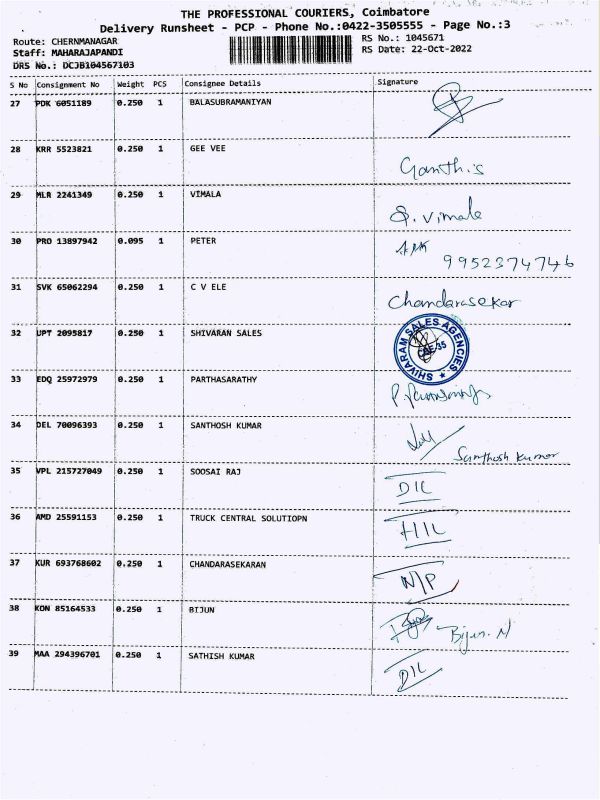 THE PROFESSIONAL COURIERS, Coimbatore
Delivery Runsheet - PCP - Phone No.:0422-3505555 - Page No.:3
Route: CHERNMANAGAR
RS No.: 1045671
Staff: MAHARAJAPANDI
RS Date: 22-Oct-2022
DRS No.: DCJB104567103
S No Consignment No Weight PCS Consignee Details Signature
27 PDK 6051189 0.250 1 BALASUBRAMANIYAN
28 KRR 5523821 0.250 1 GEE VEE
Ganthis
29 MLR 2241349 0.250 1 VIMALA
S. Vimala
30 PRO 13897942 0.095 1 PETER
9952374746
31 SVK 65062294 0.250 1 C V ELE
Chandarasekar
32 UPT 2095817 0.250 1 SHIVARAN SALES
SHIVARAM SALES AGENCIES
CBE-35
33 EDQ 25972979 0.250 1 PARTHASARATHY
34 DEL 70096393 0.250 1 SANTHOSH KUMAR
Santhosh Kumar
35 VPL 215727049 0.250 1 SOOSAI RAJ
DIL
36 AMD 25591153 0.250 1 TRUCK CENTRAL SOLUTIOPN
HIL
37 KUR 693768602 0.250 1 CHANDARASEKARAN
N/P
38 KON 85164533 0.250 1 BIJUN
Bijun. N
39 MAA 294396701 0.250 1 SATHISH KUMAR
DIL